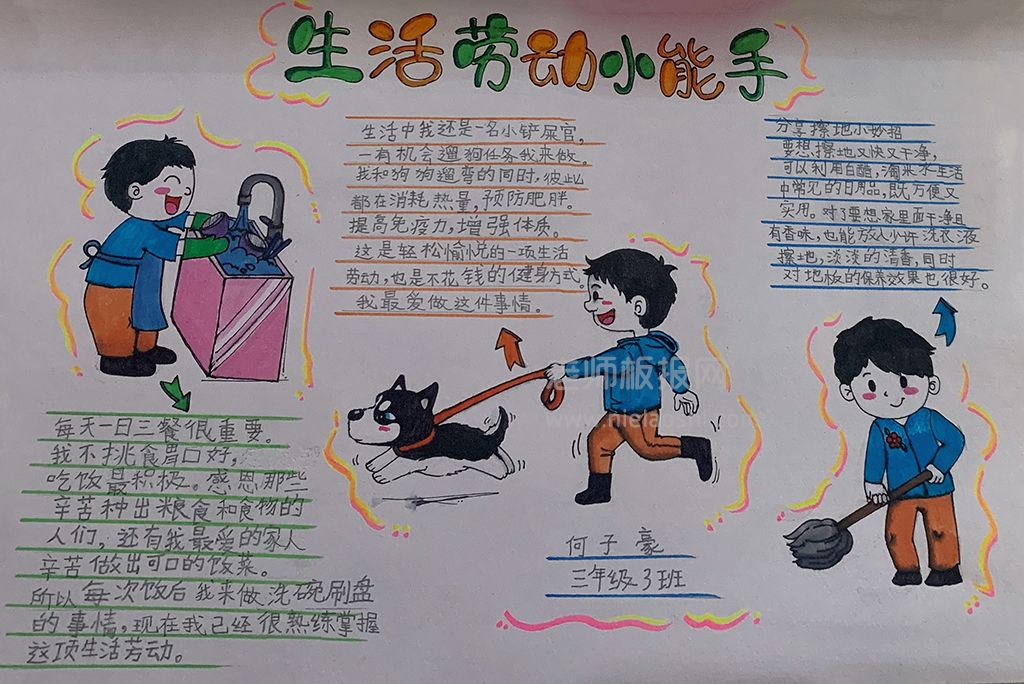 生活劳动小能手
生活中我还是一名小铲屎官,
一有机会遛狗任务我来做。
我和狗狗遛弯的同时,彼此
都在消耗热量,预防肥胖。
提高免疫力,增强体质。
这是轻松愉悦的一项生活
劳动,也是不花钱的健身方式。
我最爱做这件事情。
分享擦地小妙招
要想擦地又快又干净,
可以利用白醋,淘米水生活
中常见的日用品,既方便又
实用。对了要想家里面干净且
有香味,也能放入少许洗衣液
擦地,淡淡的清香,同时
对地板的保养效果也很好。
每天一日三餐很重要。
我不挑食胃口好,
吃饭最积极。感恩那些
辛苦种出粮食和食物的
人们,还有我最爱的家人
辛苦做出可口的饭菜。
所以每次饭后我来做洗碗刷盘
的事情,现在我已经很熟练掌握
这项生活劳动。
何子豪
三年级3班
老师板报网